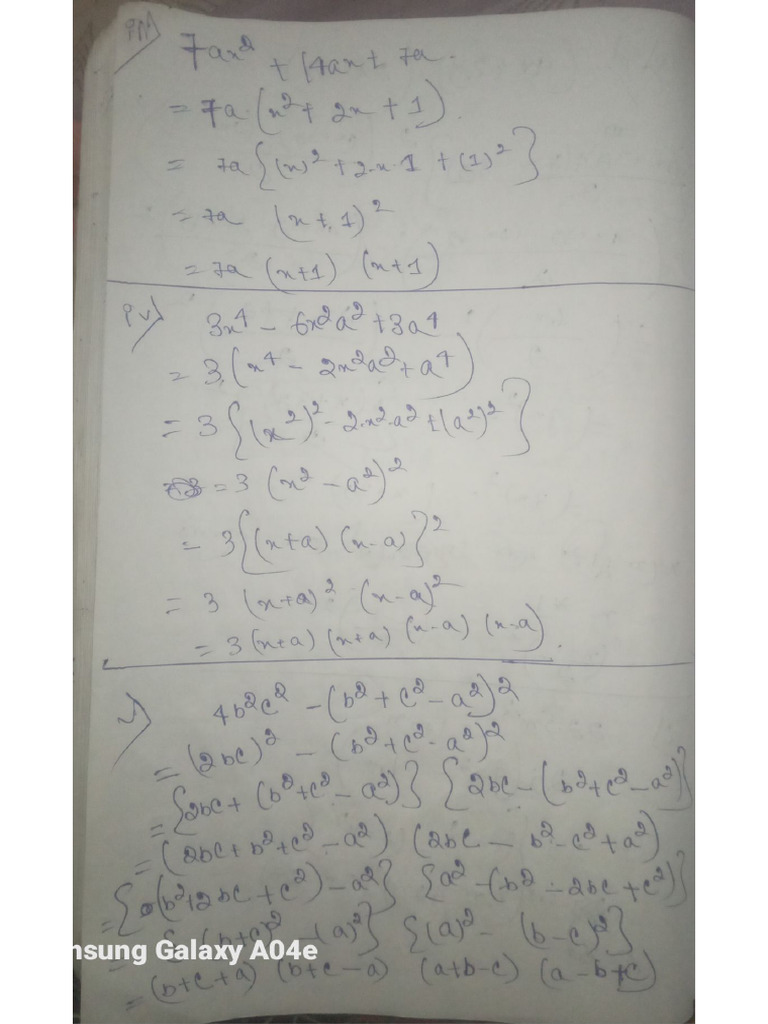 iii)
7ax² + 14ax + 7a.
= 7a (x² + 2x + 1)
= 7a {(x)² + 2·x·1 + (1)²}
= 7a (x + 1)²
= 7a (x+1) (x+1)
iv)
3x⁴ - 6x²a² + 3a⁴
= 3 (x⁴ - 2x²a² + a⁴)
= 3 {(x²)² - 2·x²·a² + (a²)²}
= 3 (x² - a²)²
= 3 {(x+a) (x-a)}²
= 3 (x+a)² (x-a)²
= 3 (x+a) (x+a) (x-a) (x-a).
v)
4b²c² - (b² + c² - a²)²
= (2bc)² - (b² + c² - a²)²
= {2bc + (b² + c² - a²)} {2bc - (b² + c² - a²)}
= (2bc + b² + c² - a²) (2bc - b² - c² + a²)
= {(b² + 2bc + c²) - a²} {a² - (b² - 2bc + c²)}
= {(b+c)² - (a)²} {(a)² - (b-c)²}
= (b+c+a) (b+c-a) (a+b-c) (a-b+c)
nsung Galaxy A04e